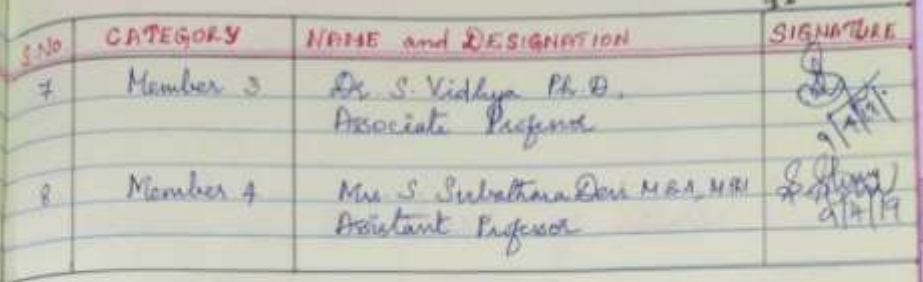 S.No CATEGORY NAME and DESIGNATION SIGNATURE
7 Member 3 Dr S. Vidhya Ph.D.
Associate Professor
9/4/19
8 Member 4 Mrs S Subathara Devi MBA, M.Phil
Assistant Professor
9/4/19